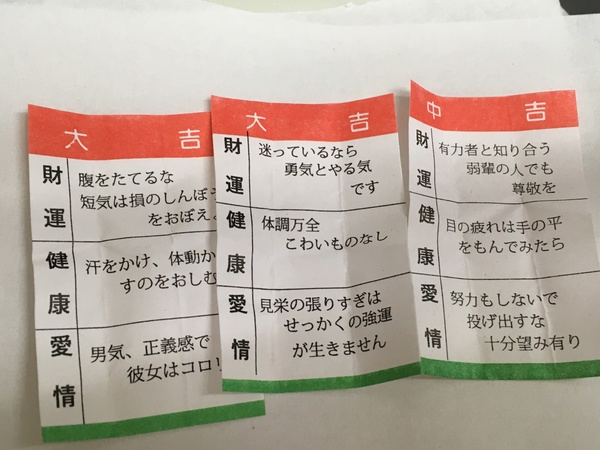 大吉
財運
腹をたてるな
短気は損のしんぼう
をおぼえよ
健康
汗をかけ、体動か
すのをおしむ
愛情
男気、正義感で
彼女はコロリ
大吉
財運
迷っているなら
勇気とやる気
です
健康
体調万全
こわいものなし
愛情
見栄の張りすぎは
せっかくの強運
が生きません
中吉
財運
有力者と知り合う
弱輩の人でも
尊敬を
健康
目の疲れは手の平
をもんでみたら
愛情
努力もしないで
投げ出すな
十分望み有り